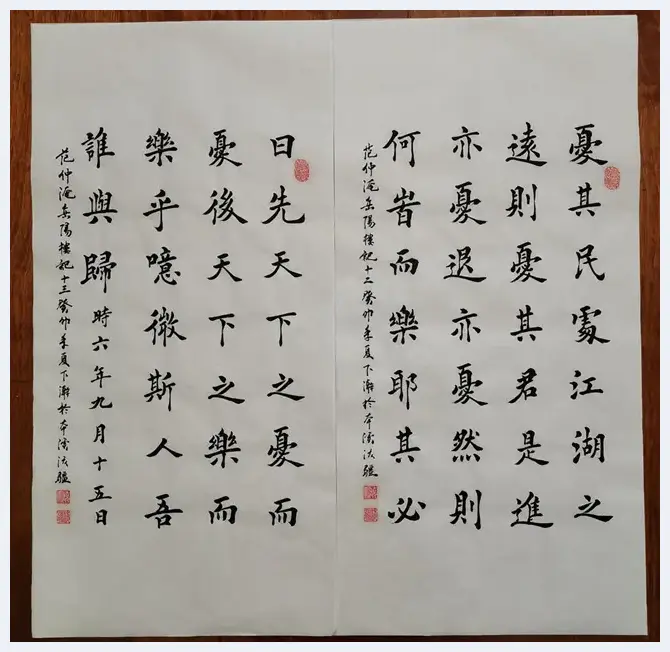 憂其民處江湖之
遠則憂其君是進
亦憂退亦憂然則
何旹而樂耶其必
范仲淹岳陽樓記十二癸卯季夏下澣於本溪
曰先天下之憂而
憂後天下之樂而
樂乎噫微斯人吾
誰與歸時六年九月十五日
范仲淹岳陽樓記十三癸卯季夏下澣於本溪